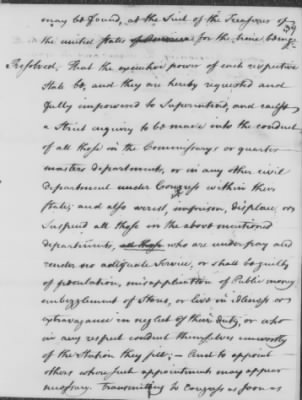 may be found, at the Suit of the Treasurer of
the united States of America for the time being
Resolved, That the executive power of each respective
State be, and they are hereby requested and
fully impowered to Superintend, and cause
a Strict enquiry to be made into the conduct
of all those in the Commissarys or quarter
masters department, or in any other civil
department under Congress within their
State; and also arrest, imprison, displace, or
Suspend all those in the above mentioned
departments, all those who are under pay and
render no adequate Service, or shall be guilty
of peculation, misapplication of Public money
embezzlement of Stores, or live in Idleness or
extravagance in neglect of their duty, or who
in any respect conduct themselves unworthy
of the Station they fill; — And to appoint
others where such appointments may appear
necessary. Transmitting to Congress as soon as